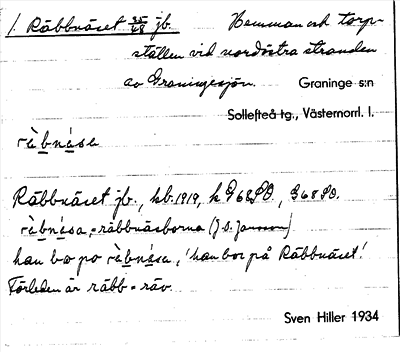 1. Räbbnäset 35/48 jb. Hemman och torp-
ställen vid nordöstra stranden
av Graningesjön. Graninge s:n
Sollefteå tg., Västernorrl. l.
Räbbnäset jb., hb. 1919, k G68 SO., G68 SO.
= räbbnäsborna (J.O. Jansson)
han bor på, 'han bor på Räbbnäset'.
Förleden är räbb = räv.
Sven Hiller 1934